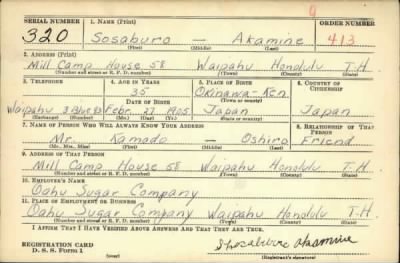 9
SERIAL NUMBER 1. NAME (Print) ORDER NUMBER
320 Sosaburo — Akamine 413
(First) (Middle) (Last)
2. ADDRESS (Print)
Mill Camp House 58 Waipahu Honolulu T.H.
(Number and street or R. F. D. number) (Town) (County) (State)
3. TELEPHONE 4. AGE IN YEARS 5. PLACE OF BIRTH 6. COUNTRY OF CITIZENSHIP
35 Okinawa-Ken
DATE OF BIRTH (Town or county)
Waipahu Feb. 27 1905 Japan Japan
(Exchange) (Number) (Mo.) (Day) (Yr.) (State or country)
7. NAME OF PERSON WHO WILL ALWAYS KNOW YOUR ADDRESS 8. RELATIONSHIP OF THAT PERSON
Mr. Kamado — Oshiro Friend
(Mr., Mrs., Miss) (First) (Middle) (Last)
9. ADDRESS OF THAT PERSON
Mill Camp House 58 Waipahu Honolulu T.H.
(Number and street or R. F. D. number) (Town) (County) (State)
10. EMPLOYER'S NAME
Oahu Sugar Company
11. PLACE OF EMPLOYMENT OR BUSINESS
Oahu Sugar Company Waipahu Honolulu T.H.
(Number and street or R. F. D. number) (Town) (County) (State)
I AFFIRM THAT I HAVE VERIFIED ABOVE ANSWERS AND THAT THEY ARE TRUE.
REGISTRATION CARD
D. S. S. Form 1 Shosaburo Akamine
(Registrant's signature)